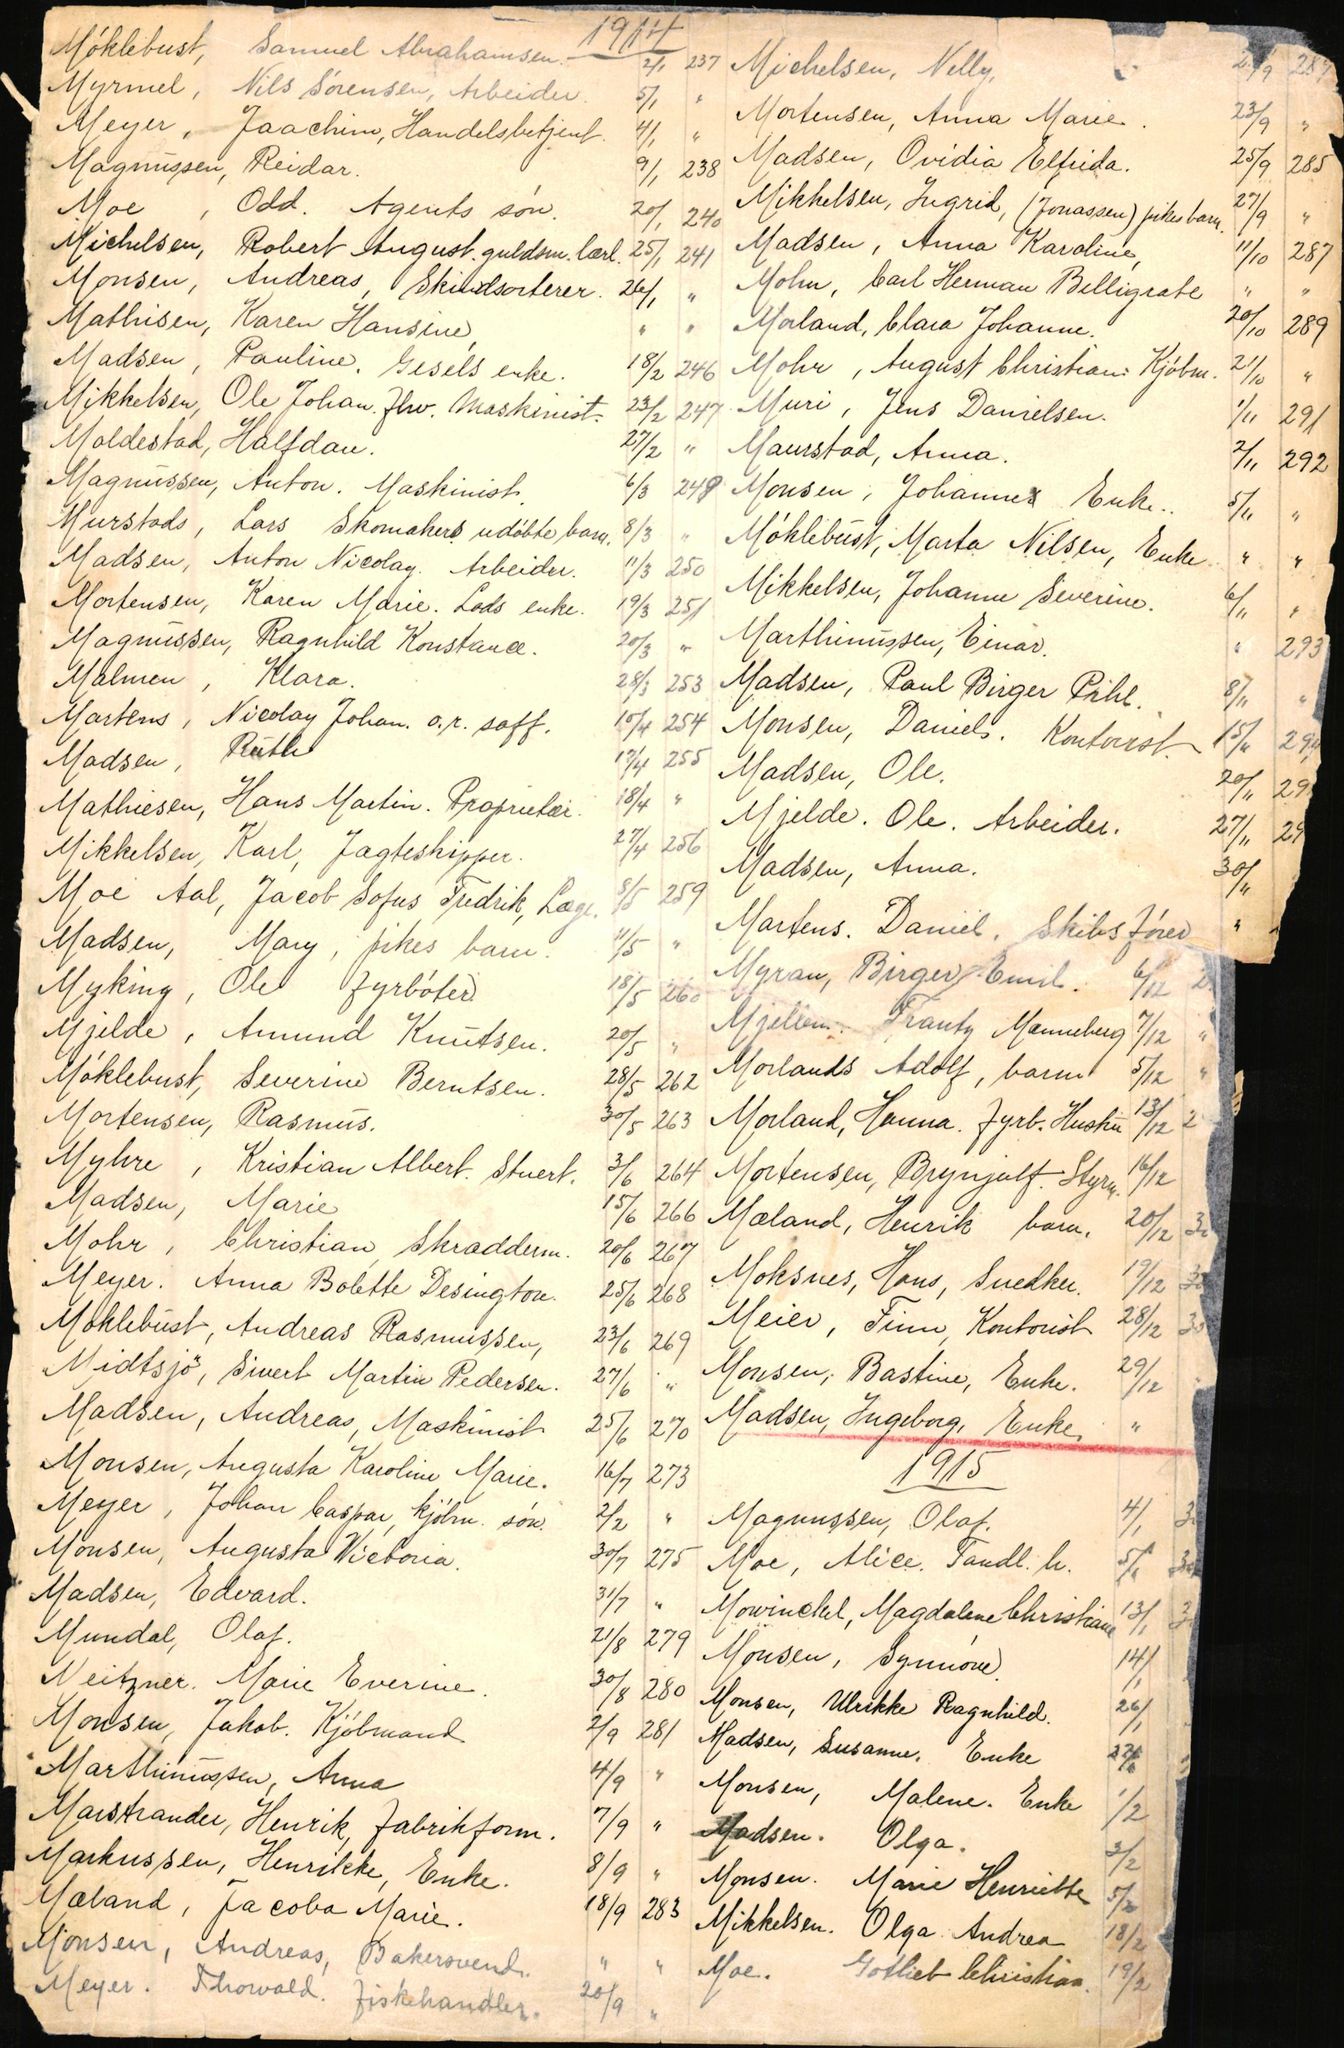 1914
Móklebust, Samuel Abrahamsen. 2/1 237
Myrmel, Nils Sørensen, Arbeider. 5/1 "
Meyer, Jaachim, Handelsbetjent. 4/1 "
Magnussen, Reidar. 9/1 238
Moe, Odd. Agents són. 20/1 240
Michelsen, Robert August. guldsm. lærl. 25/1 241
Monsen, Andreas, Skindsorterer. 26/1 "
Mathisen, Karen Hansine, " "
Madsen, Pauline. Gesels enke. 18/2 246
Mikkelsen, Ole Johan. fhv. Maskinist. 23/2 247
Moldestad, Halfdan. 27/2 "
Magnussen, Anton. Maskinist. 6/3 248
Murstads, Lars Skomakers udóbte barn. 8/3 "
Madsen, Anton Nicolay. Arbeider. 11/3 250
Mortensen, Karen Marie. Lods enke. 19/3 251
Magnussen, Ragnhild Konstance. 20/3 "
Malmen, Klara. 28/3 253
Martens, Nicolay Johan. o.r. saff. 10/4 254
Madsen, Ruth 17/4 255
Mathiesen, Hans Martin. Proprietær. 18/4 "
Mikkelsen, Karl, Jagteskipper. 27/4 256
Moe Aal, Jacob Sofus Fredrik, Læge. 8/5 259
Madsen, Mary, pikes barn. 11/5 "
Myking, Ole fyrbóter 18/5 260
Mjelde, Amund Knutsen. 20/5 "
Móklebust, Severine Berntsen. 28/5 262
Mortensen, Rasmus. 30/5 263
Myhre, Kristian Albert. Stuert. 3/6 264
Madsen, Marie 15/6 266
Mohr, Christian, Skradderm. 20/6 267
Meyer. Anna Bolette Desington. 25/6 268
Móklebust, Andreas Rasmussen, 23/6 269
Midtsjö, Sivert Martin Pedersen. 27/6 "
Madsen, Andreas, Maskinist 25/6 270
Monsen, Augusta Karoline Marie. 16/7 273
Meyer, Johan Caspar, kjóbm. són. 2/2 "
Monsen, Augusta Victoria. 30/7 275
Madsen, Edvard. 31/7 "
Mundal, Olaf. 21/8 279
Neitzner. Marie Everine. 30/8 280
Monsen, Jakob. Kjóbmand 2/9 281
Marthinussen, Anna 4/9 "
Marstrander, Henrik, fabrikform. 7/9 "
Markussen, Henrikke, Enke. 8/9 "
Mæland, Jacoba Marie. 18/9 283
Monsen, Andreas, Bakersvend. " "
Meyer. Thorvald. fiskehandler. 20/9 "
Michelsen, Nelly, 21/9 287
Mortensen, Anna Marie. 23/9 "
Madsen, Ovidia Elfrida. 25/9 285
Mikkelsen, Ingrid, (Jonassen) pikes barn. 27/9 "
Madsen, Anna Karoline, 11/10 287
Mohn, Carl Herman Belligrate " "
Morland, Clara Johanne. 20/10 289
Mohr, August Christian. Kjóbm. 21/10 "
Muri, Jens Danielsen. 1/11 291
Maurstad, Anna. 2/11 292
Monsen, Johannes Enke. 5/11 "
Móklebust, Marta Nilsen, Enke. " "
Mikkelsen, Johanne Severine. 6/11 "
Marthinussen, Einar. " 293
Madsen, Paul Birger Pihl. 8/11 "
Monsen, Daniel. Kontorist. 15/11 29
Madsen, Ole. 20/11 29
Mjelde. Ole. Arbeider. 27/11 29
Madsen, Anna. 30/11
Martens. Daniel. Skibsfórer "
Myran, Birger Emil. 6/12 2
Mjellem. Frantz Manneberg 7/12 "
Morlands Adolf, barn 5/12 "
Morland, Hanna. fyrb. Hustru 13/12 2
Mortensen, Brynjulf. Styrm. 16/12
Mæland, Henrik barn. 20/12 3
Moksnes, Hans, Snedker. 19/12 30
Meier, Finn, Kontorist 28/12 30
Monsen, Bastine, Enke. 29/12
Madsen, Ingeborg, Enke. "
1915
Magnussen, Olaf. 4/1 3
Moe, Alice. Tandl. h. 5/1 30
Mowinckel, Magdalene Christiane 13/1 3
Monsen, Synnóve. 14/1
Monsen, Ulrikke Ragnhild. 26/1
Madsen, Susanne. Enke
Monsen, Malene. Enke 1/2
Madsen. Olga. 3/2
Monsen. Marie Henriette 5/2
Mikkelsen. Olga Andrea 18/2
Moe. Gotlieb Christian. 19/2